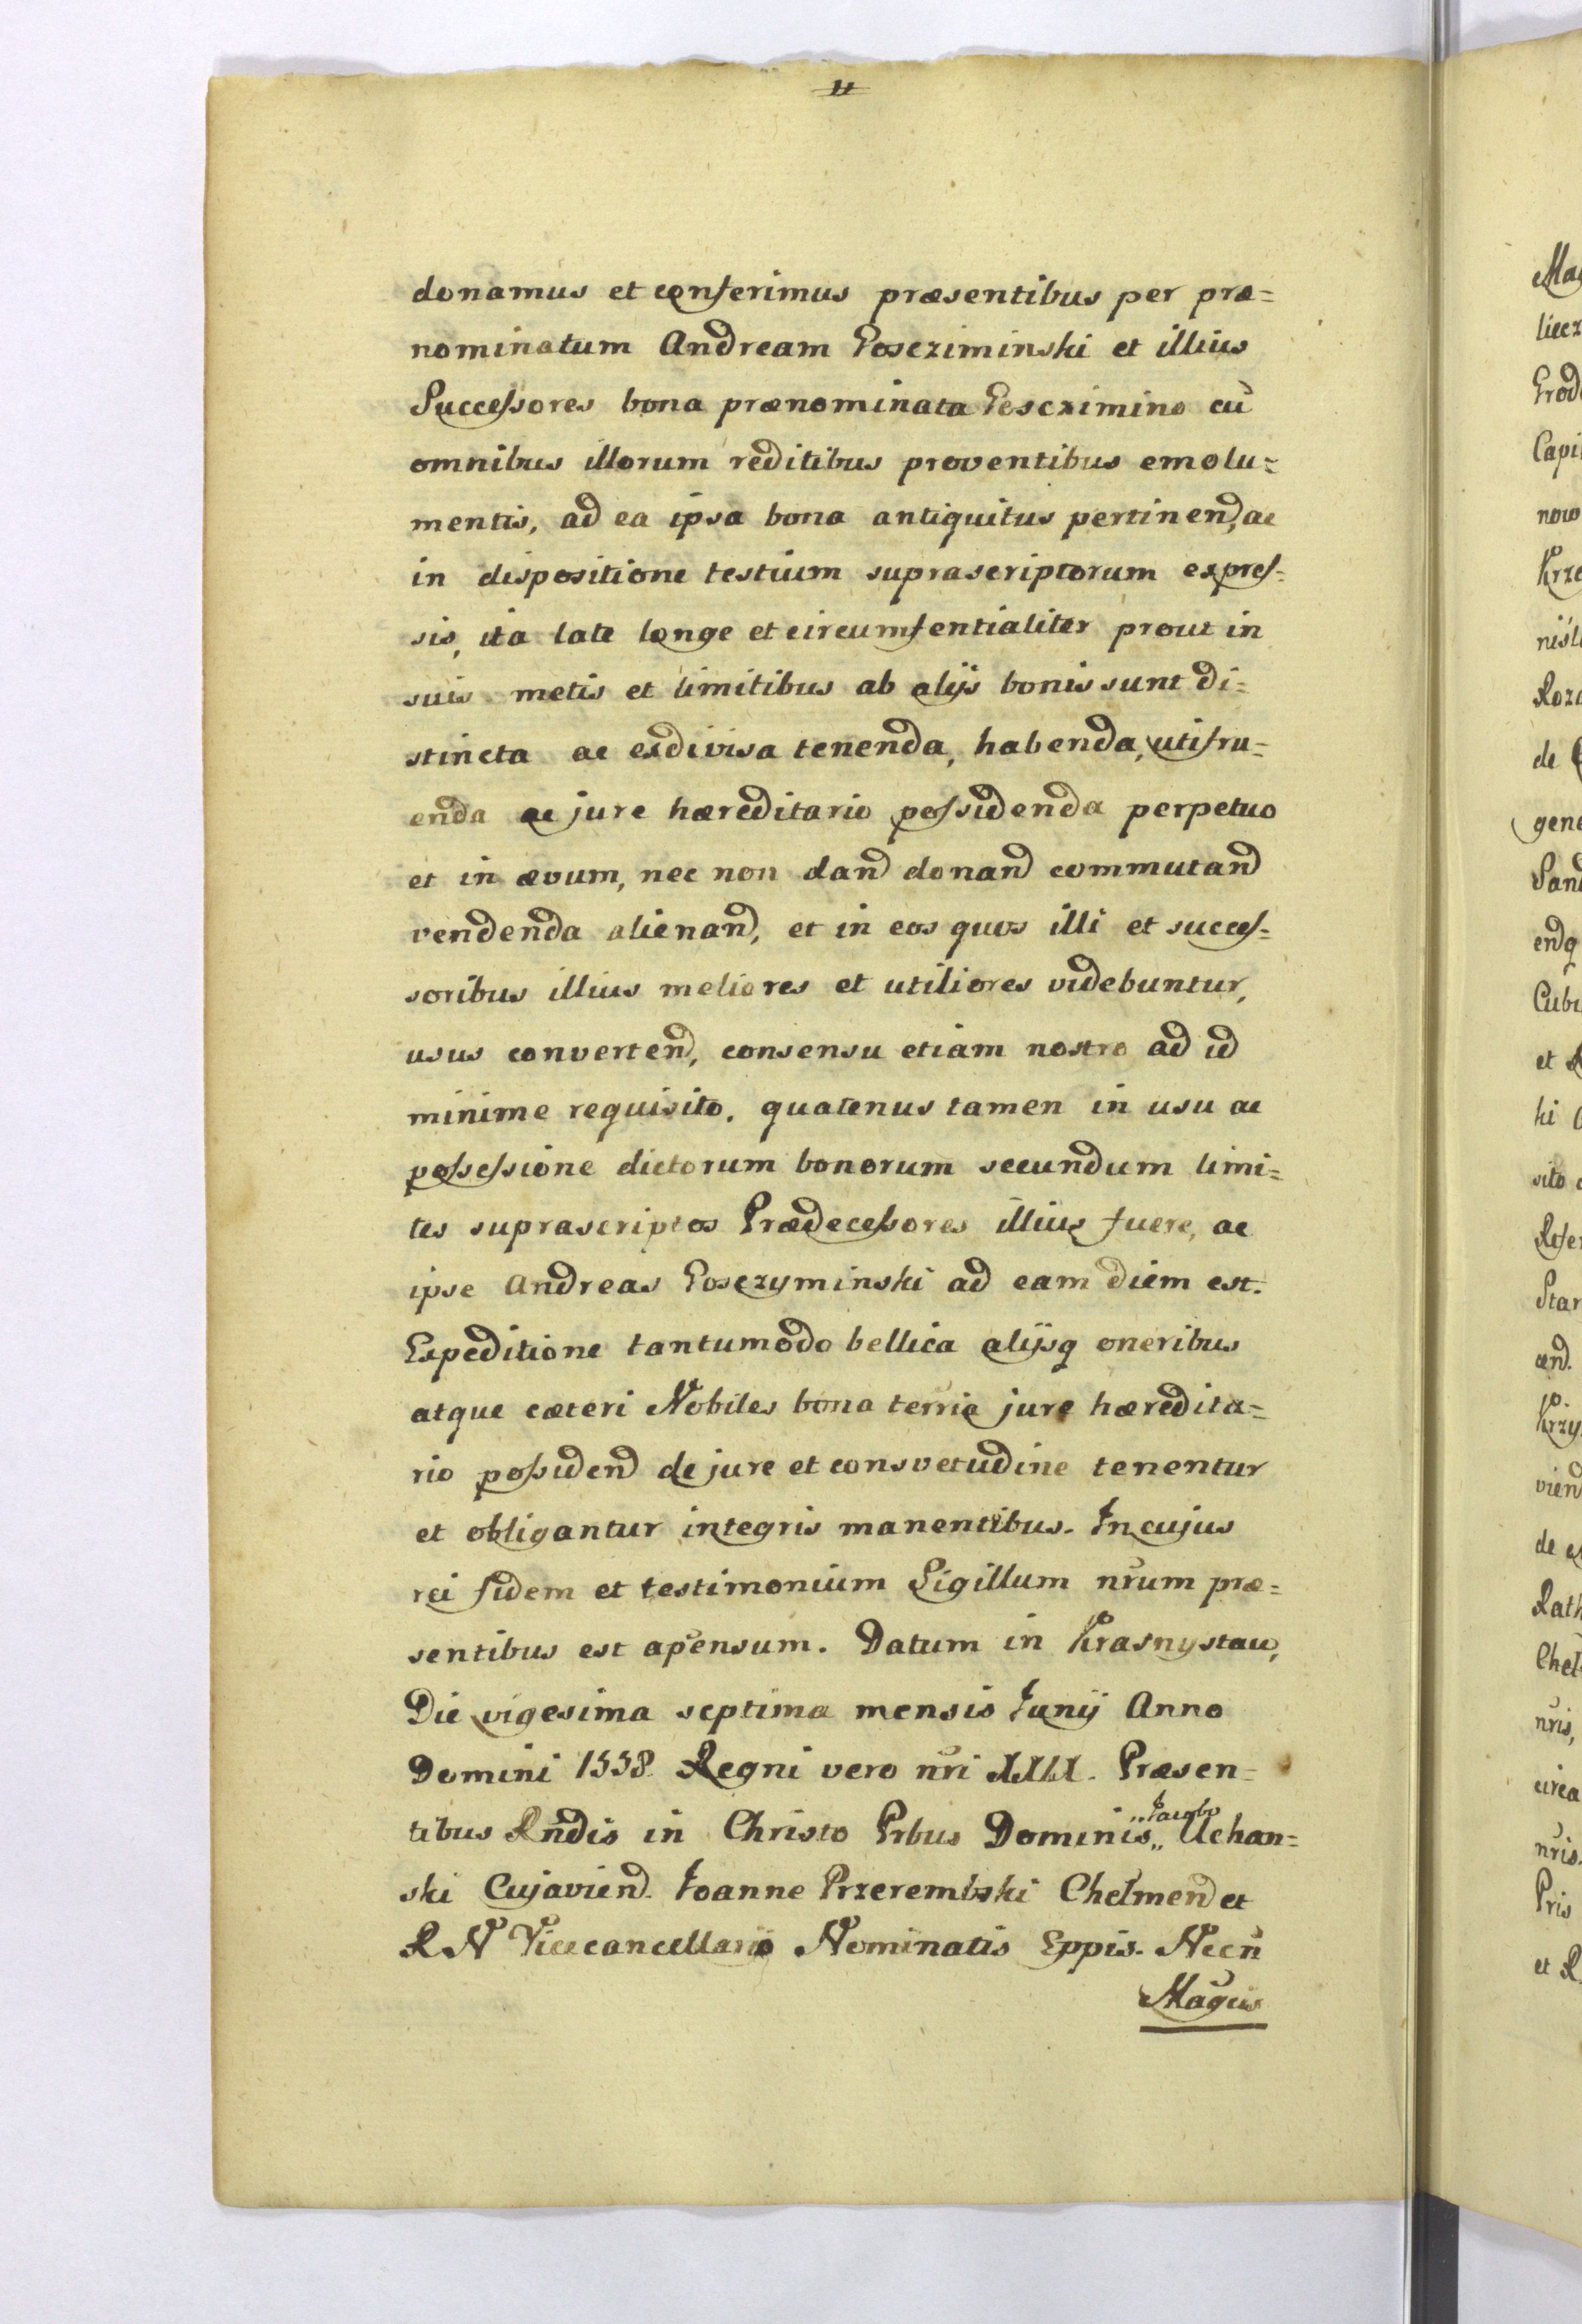 donamus et conferimus præsentibus per præ=
nominatum Andream Goscziminski et illius
Successores bona prænominata Gosczimino cū
omnibus illorum reditibus proventibus emolu=
mentis, ad ea ipsa bona antiquitus pertinend, ac
in dispositione testium suprascriptorum expres=
sis, ita late longe et circumferentialiter prout in
suis metis et limitibus ab alijs bonis sunt di=
stincta ac exdivisa tenenda, habenda, utifru=
enda ac jure hæreditario possidenda perpetuo
et in ævum, nec non dand donand commutand
vendenda alienand, et in eos quos illi et succes=
soribus illius meliores et utiliores videbuntur,
usus convertend, consensu etiam nostro ad id
minime requisito. quatenus tamen in usu ac
possessione dictorum bonorum secundum limi=
tes suprascriptos Prædecessores illius fuere, ac
ipse Andreas Gosczyminski ad eam diem est.
Expeditione tantumodo bellica alijsq oneribus
atque cæteri Nobiles bona terrig jure hæredita=
rio possidend de jure et consvetudine tenentur
et obligantur integris manentibus. In cujus
rei fidem et testimonium Sigillum nrum præ=
sentibus est apensum. Datum in Krasnystaw,
Die vigesima septima mensis Junij Anno
Domini 1558 Regni vero nri XXIX. Præsen=
tibus Rndis in Christo Prbus Dominis „Jacobo„ Uchan=
ski Cujaviend. Joanne Przerembski Chelmend et
R N Vicecancellario Nominatis Eppis. Necn
Magcis